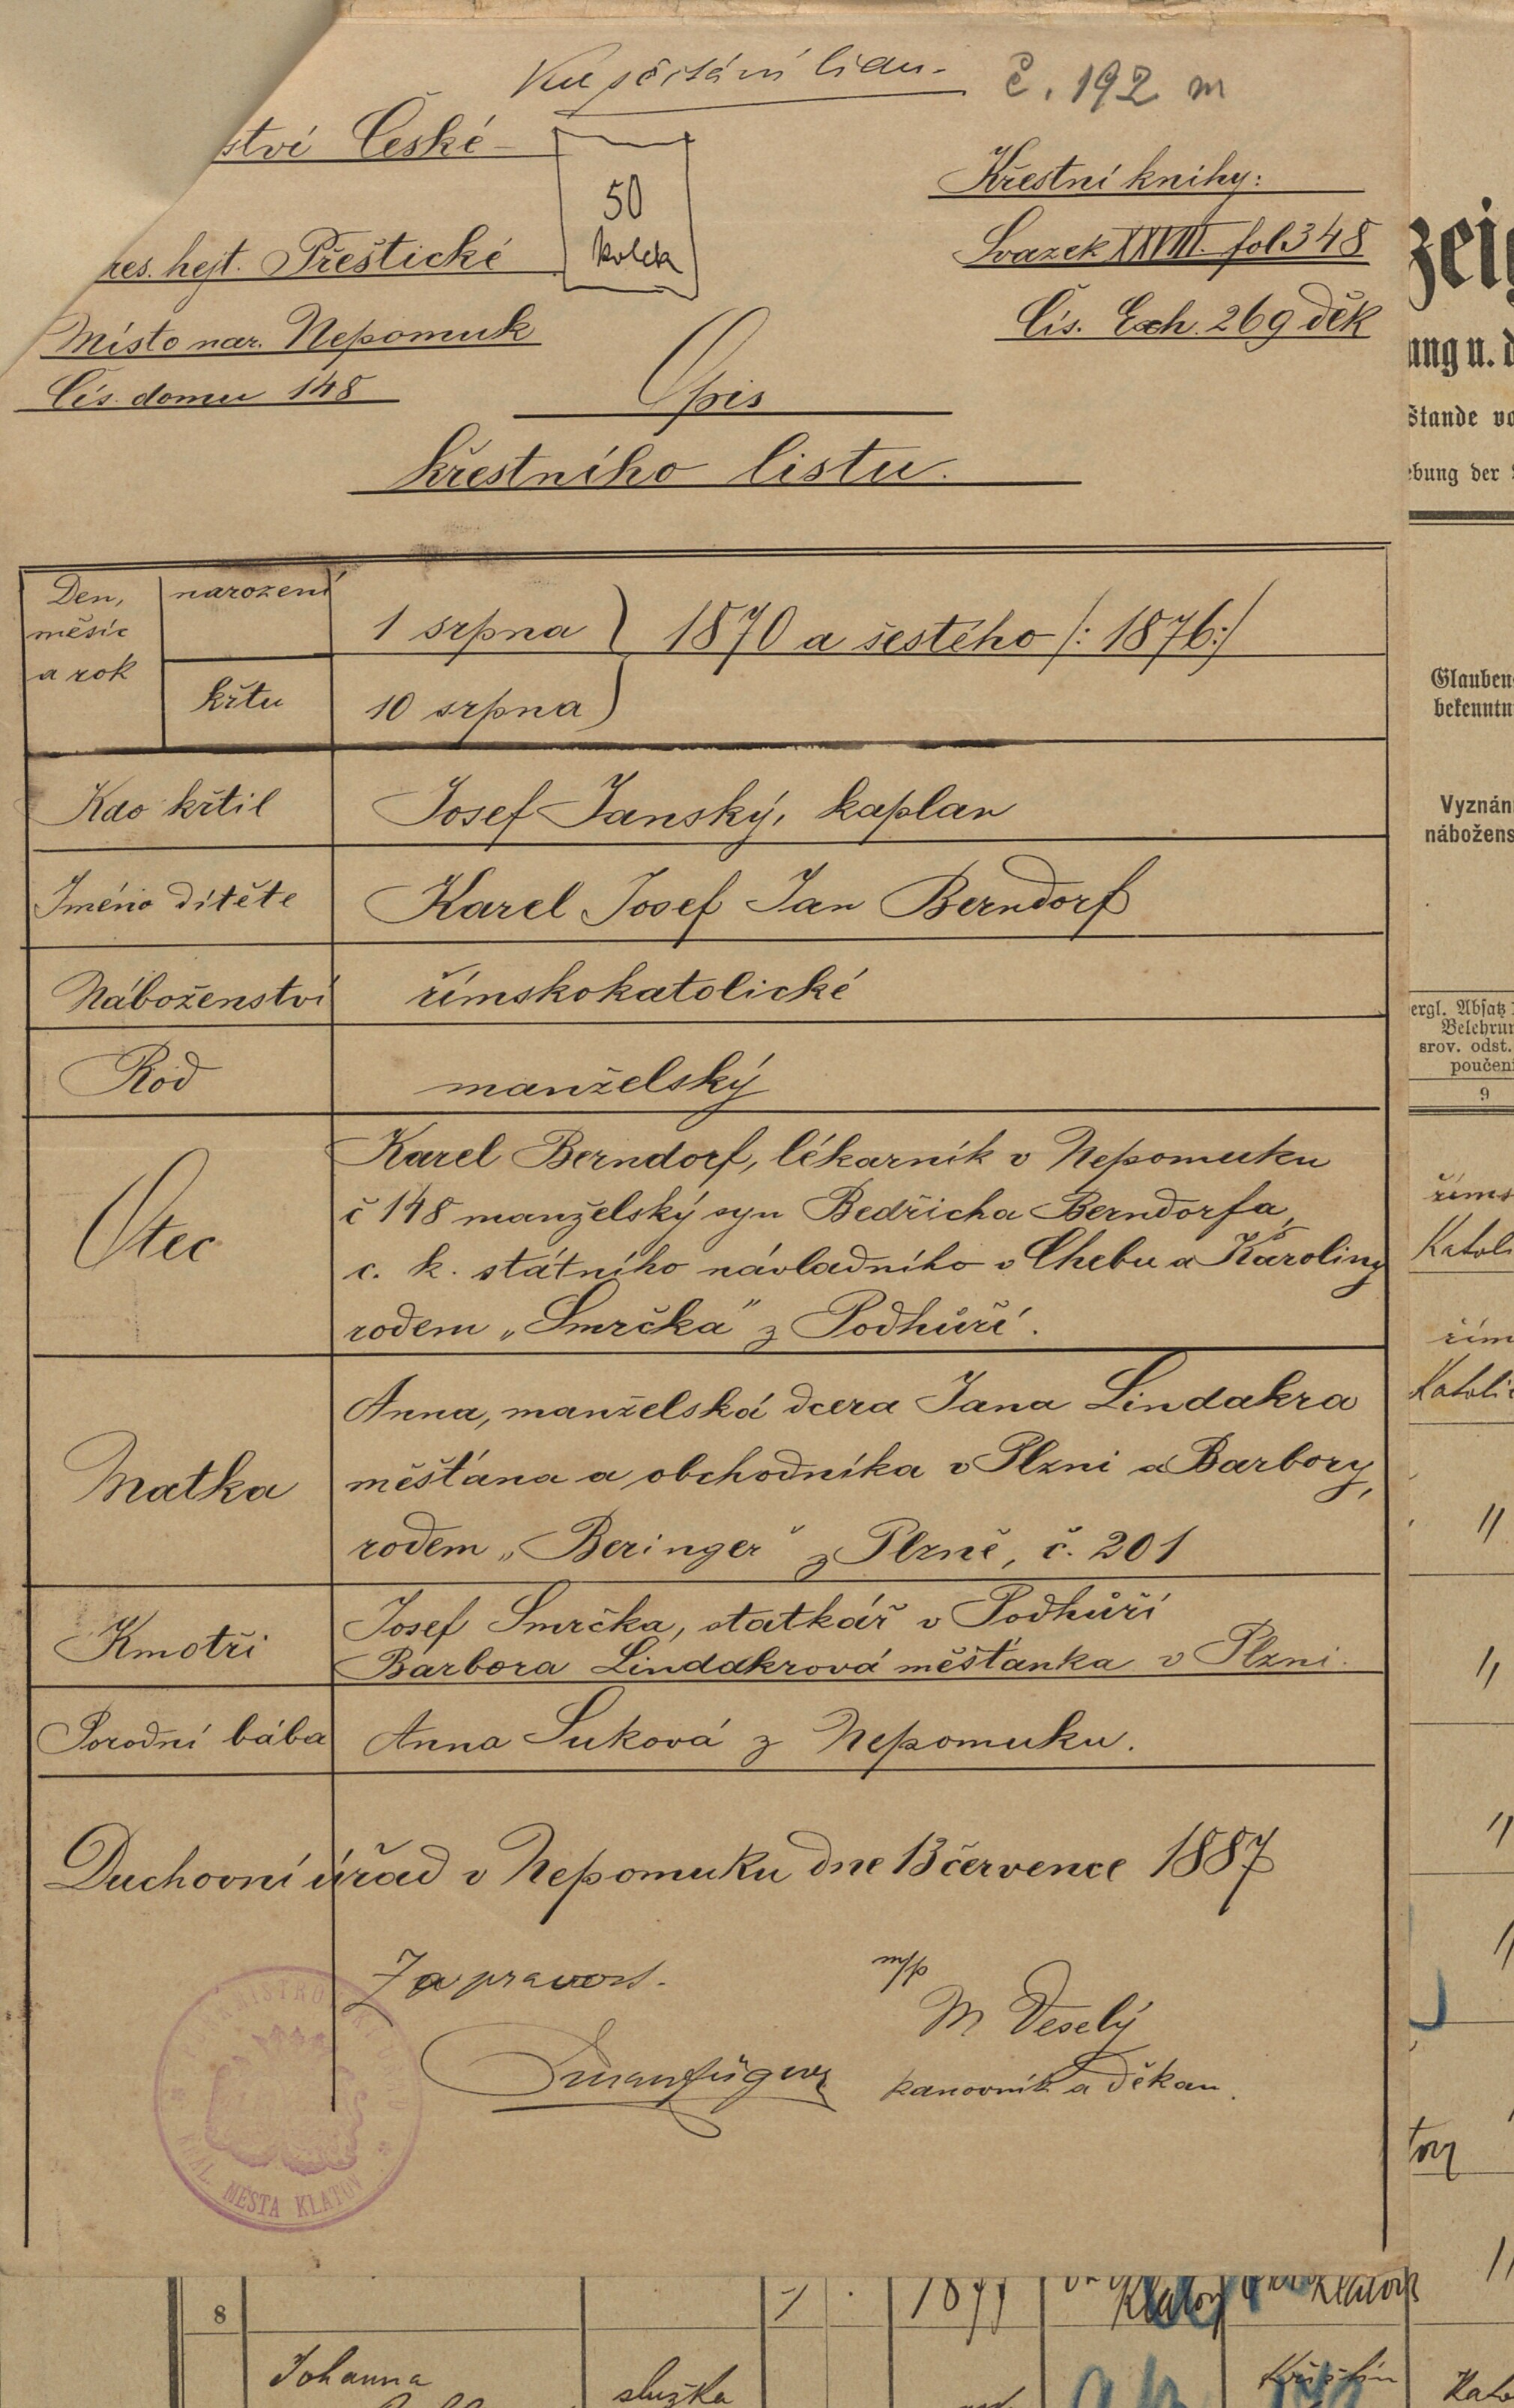 Ku sčítání lidu.
č. 192 m
ství České
50
kolek
Křestní knihy:
res. hejt. Přeštické
Svazek XXVIII. fol 348
Místo nar. Nepomuk
Čís. Exh. 269 děk
Čís. domu 148
Opis
křestního listu.
Den,
měsíc
a rok
narození
1 srpna } 1870 a šestého /: 1876:/
křtu
10 srpna
Kdo křtil
Josef Janský, kaplan
Jméno dítěte
Karel Josef Jan Berndorf
Náboženství
římskokatolické
Rod
manželský
Otec
Karel Berndorf, lékarník v Nepomuku
č 148 manželský syn Bedřicha Berndorfa,
c. k. státního návladního v Chebu a Karoliny
rodem „Smrčka" z Podhůří.
Matka
Anna, manželská dcera Jana Lindakra
měšťana a obchodníka v Plzni a Barbory,
rodem „Beringer" z Plzně, č. 201
Kmotři
Josef Smrčka, statkář v Podhůří
Barbora Lindakrová měšťanka v Plzni.
Porodní bába
Anna Suková z Nepomuku.
Duchovní úřad v Nepomuku dne 13 července 1887
Za pravost.
m/p
M Veselý
kanovník a děkan.
KRÁL. MĚSTA KLATOV
zeig
ung u. d
Stande vo
ebung der
Glauben
bekenntn
Vyznán
nábožens
ergl. Absatz
Belehrun
srov. odst.
poučen
9
říms
Katol
řím
Katolic
"
"
"
"
tovy
"
8
1
1877
Klatovy
Klatovy
Johanna
služka
Kato